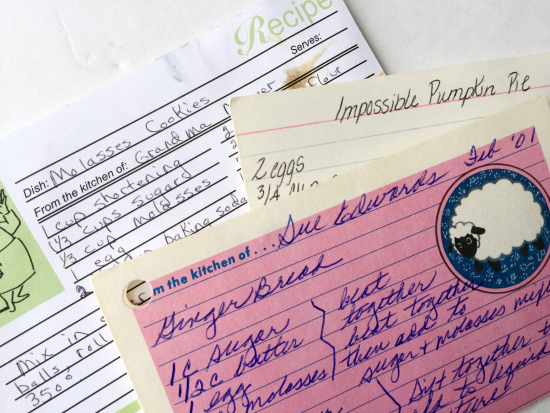 Recipe
Serves:
Dish: Molasses Cookies
From the kitchen of: Grandma
Flour
1 cup shortening
1/3 cups sugar
1/3 cup molasses
1 egg
baking soda
mix in
balls, roll
350°
Impossible Pumpkin Pie
2 eggs
3/4
Feb '01
m the kitchen of... Sue Edwards
Ginger Bread
1 C sugar
1/2 C butter
1 egg
molasses
beat
together
beat together
then add to
sugar + molasses
Sift together
to liquid